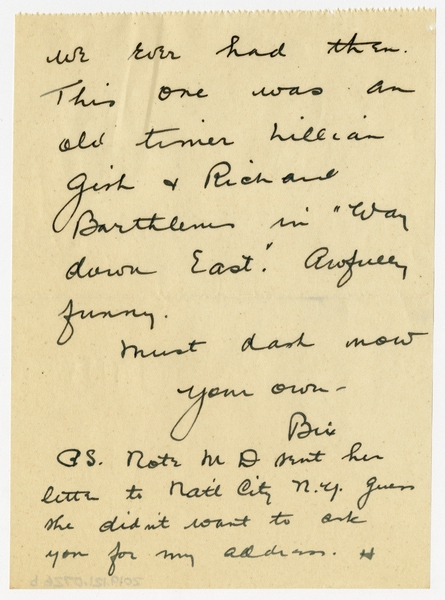 we ever had then.
This one was an
old timer Lillian
Gish & Richard
Barthlemes in "Way
down East". Awfully
funny.
Must dash now
your own-
Bix
PS. Note M D sent her
letter to Nat'l City N.Y. Guess
she didn't want to ask
you for my address. H
2019.121.0726 b